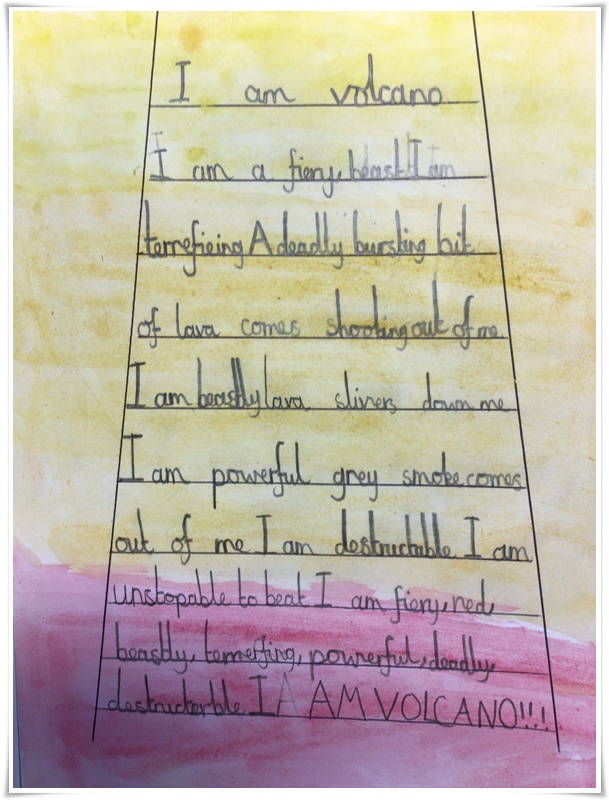 I am volcano
I am a fiery, beast I am
terrefieing A deadly bursting bit
of lava comes shooting out of me
I am beastly lava slivers down me
I am powerful grey smoke comes
out of me I am destructable I am
unstopable to beat I am fiery, red,
beastly, terrerfing, powerful, deadly,
destructerble I A AM VOLCANO!!!!